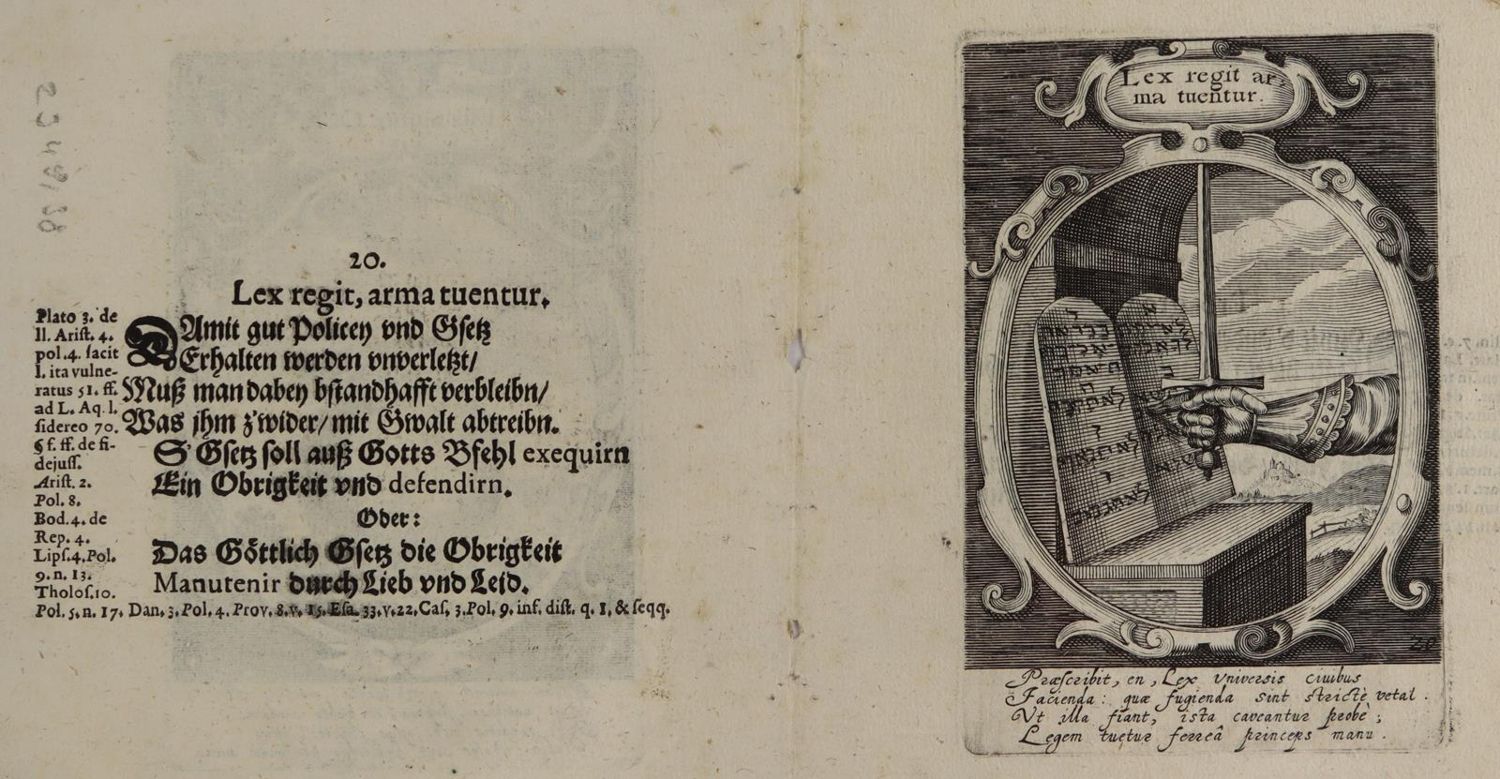 20.
Lex regit, arma tuentur.
Plato 3. de
ll. Arist. 4.
pol. 4. facit
l. ita vulne-
ratus 51. ff.
ad L. Aq. l.
sidereo 70.
§ f. ff. de fi-
dejuss.
Arist. 2.
Pol. 8.
Bod. 4. de
Rep. 4.
Lips. 4. Pol.
9. n. 13.
Tholos. 10.
DAmit gut Policey vnd Gsetz
Erhalten werden vnverletzt/
Muß man dabey bstandhafft verbleibn/
Was jhm z'wider/ mit Gwalt abtreibn.
S' Gsetz soll auß Gotts Bfehl exequirn
Ein Obrigkeit vnd defendirn.
Oder:
Das Göttlich Gsetz die Obrigkeit
Manutenir durch Lieb vnd Leid.
Pol. 5. n. 17. Dan. 3. Pol. 4. Prov. 8. v. 15. Esa. 33. v. 22. Cas. 3. Pol. 9. inf. dist. q. 1. & seqq.
Lex regit ar,
ma tuentur.
20
Præscribit, en, Lex Vniversis ciuibus
Facienda: quæ fugienda sint strictè vetat.
Vt illa fiant, ista caveantur probè;
Legem tuetur ferreâ princeps manu.